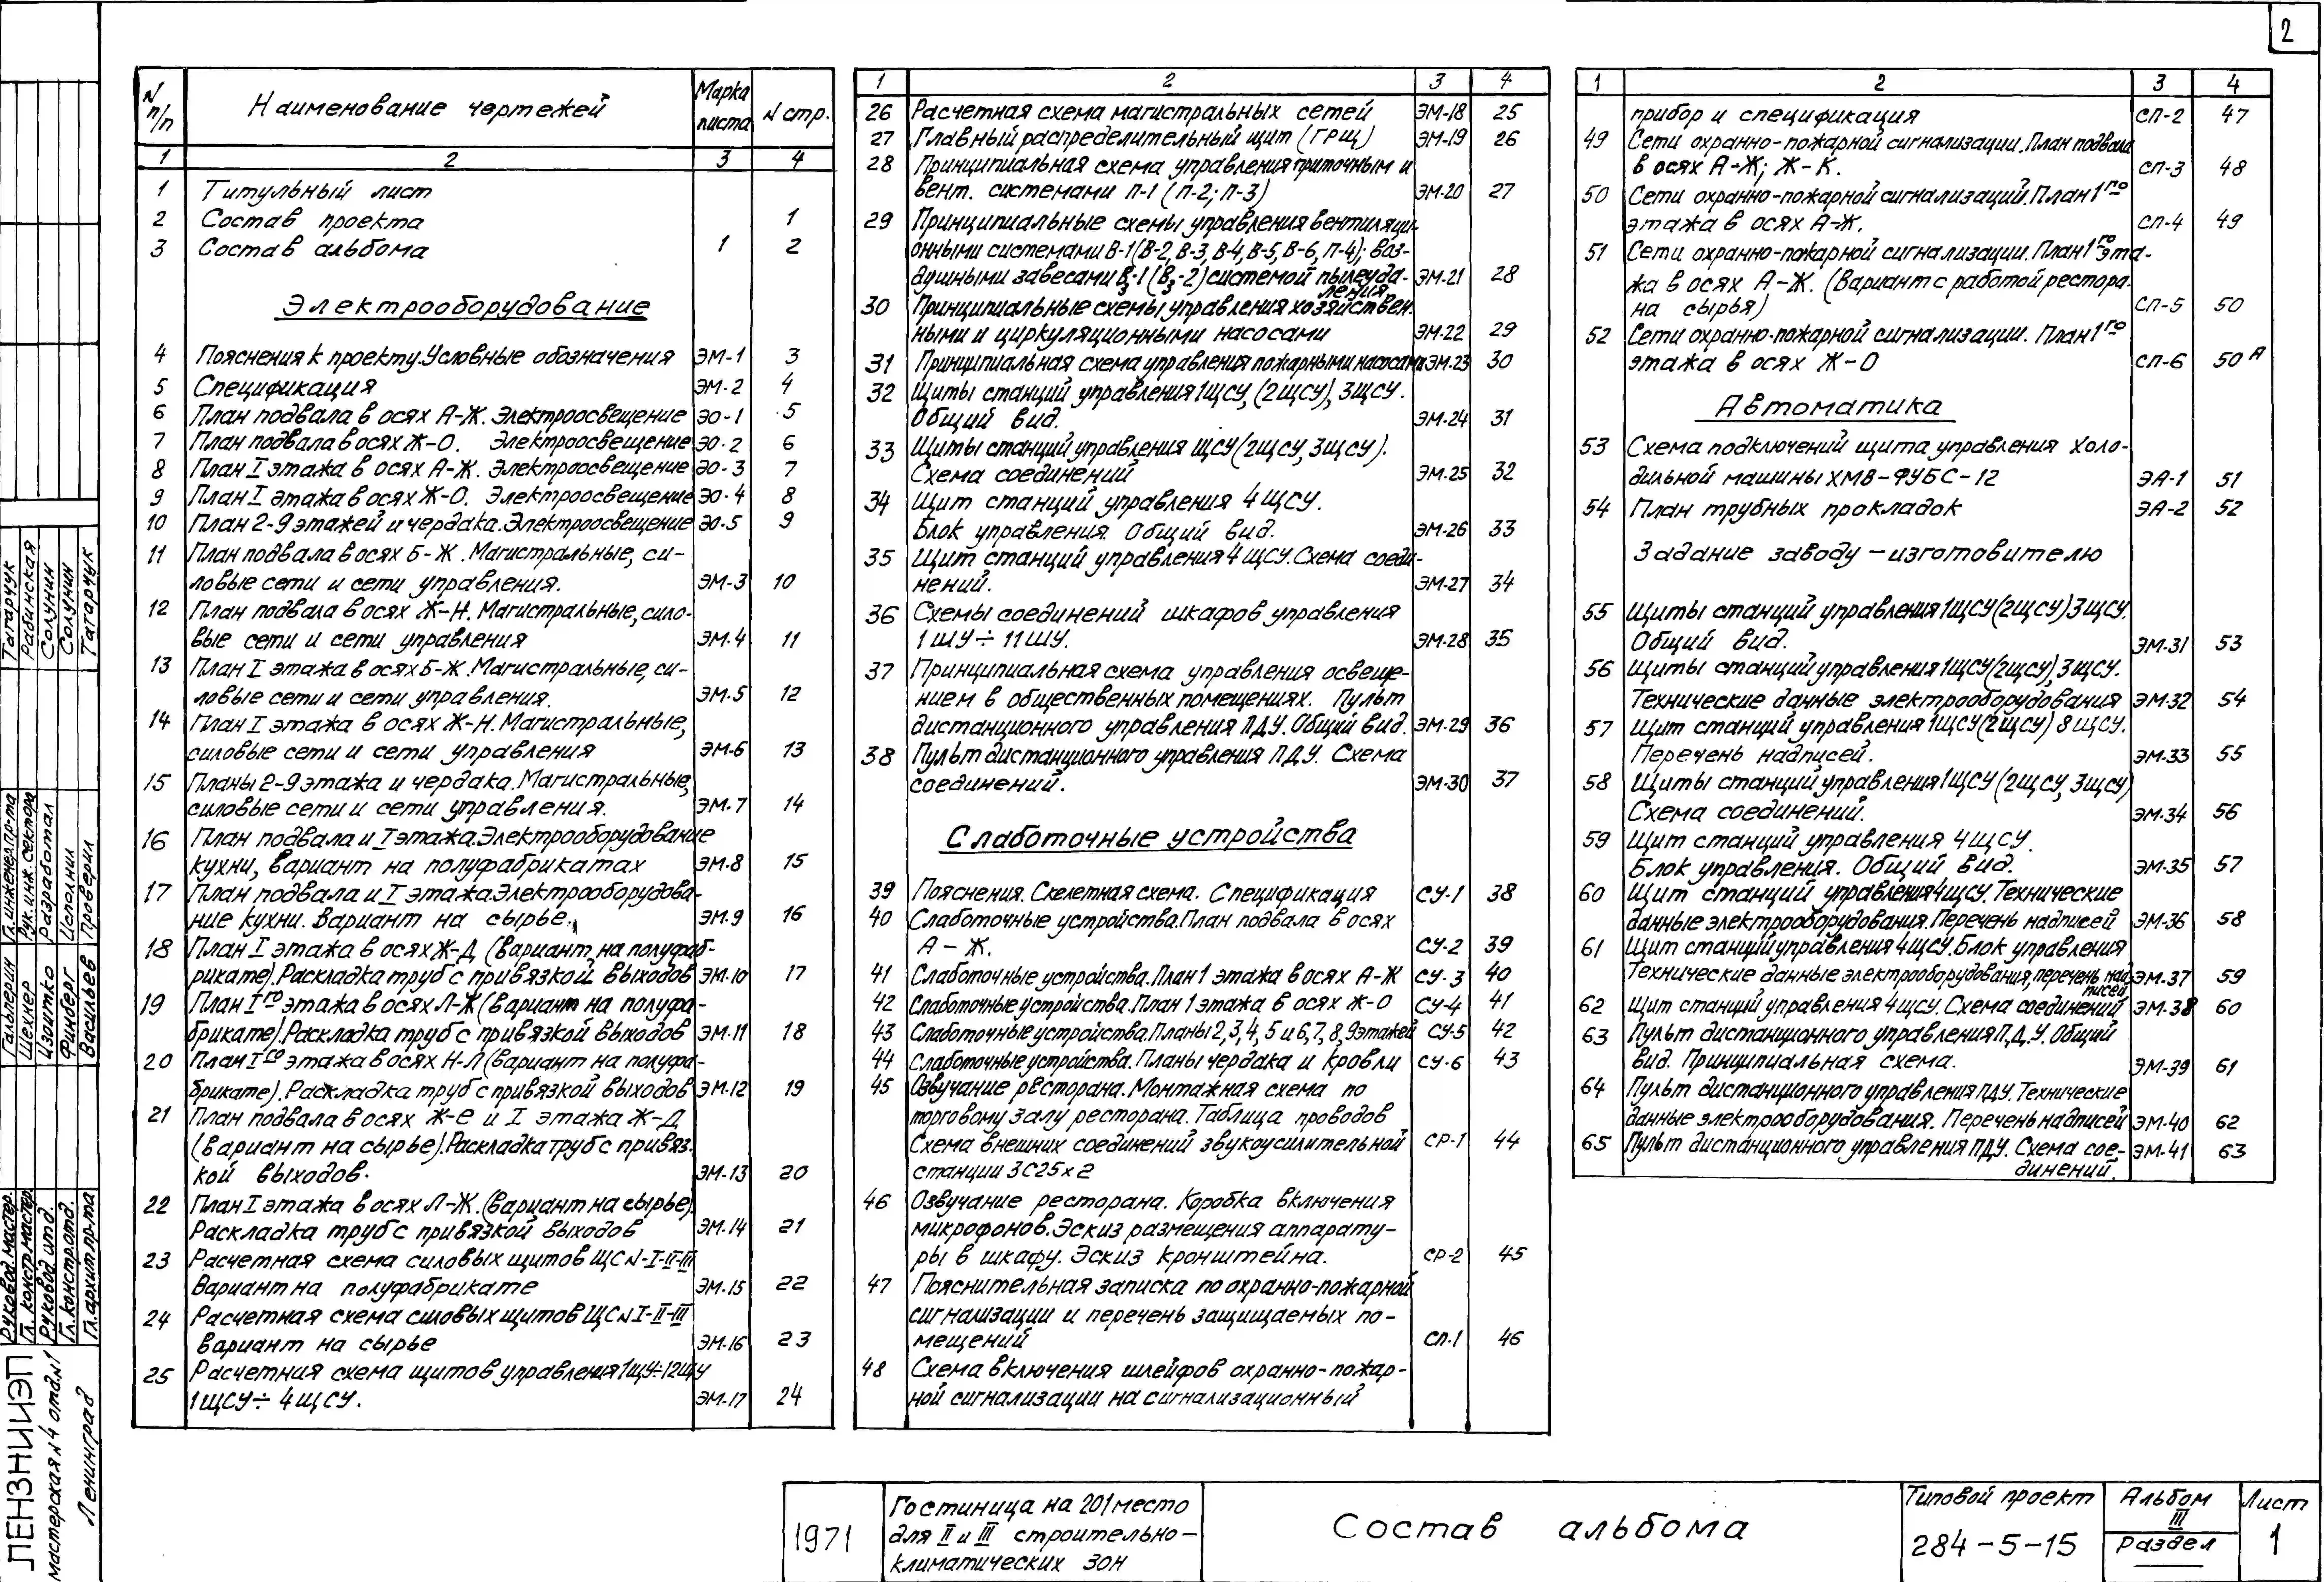 2
N п/п Наименование чертежей Марка листа N стр.
1 2 3 4
1 Титульный лист
2 Состав проекта 1
3 Состав альбома 1 2
Электрооборудование
4 Пояснения к проекту. Условные обозначения ЭМ-1 3
5 Спецификация ЭМ-2 4
6 План подвала в осях А-Ж. Электроосвещение ЭО-1 5
7 План подвала в осях Ж-О. Электроосвещение ЭО-2 6
8 План I этажа в осях А-Ж. Электроосвещение ЭО-3 7
9 План I этажа в осях Ж-О. Электроосвещение ЭО-4 8
10 План 2-9 этажей и чердака. Электроосвещение ЭО-5 9
11 План подвала в осях Б-Ж. Магистральные, си-
ловые сети и сети управления. ЭМ-3 10
12 План подвала в осях Ж-Н. Магистральные, сило-
вые сети и сети управления ЭМ-4 11
13 План I этажа в осях Б-Ж. Магистральные, си-
ловые сети и сети управления. ЭМ-5 12
14 План I этажа в осях Ж-Н. Магистральные,
силовые сети и сети управления ЭМ-6 13
15 Планы 2-9 этажа и чердака. Магистральные,
силовые сети и сети управления. ЭМ-7 14
16 План подвала и I этажа. Электрооборудование
кухни, вариант на полуфабрикатах ЭМ-8 15
17 План подвала и I этажа. Электрооборудова-
ние кухни. Вариант на сырье. ЭМ-9 16
18 План I этажа в осях Ж-Д (вариант на полуфаб-
рикате). Раскладка труб с привязкой выходов ЭМ-10 17
19 План I го этажа в осях Л-Ж (вариант на полуфа-
брикате). Раскладка труб с привязкой выходов ЭМ-11 18
20 План I го этажа в осях Н-Л (вариант на полуфа-
брикате). Раскладка труб с привязкой выходов ЭМ-12 19
21 План подвала в осях Ж-Е и I этажа Ж-Д
(вариант на сырье). Раскладка труб с привяз.
кой выходов. ЭМ-13 20
22 План I этажа в осях Л-Ж. (вариант на сырье)
Раскладка труб с привязкой выходов ЭМ-14 21
23 Расчетная схема силовых щитов ЩС N-I-II-III
Вариант на полуфабрикате ЭМ-15 22
24 Расчетная схема силовых щитов ЩС N I-II-III
вариант на сырье ЭМ-16 23
25 Расчетная схема щитов управления 1ЩУ÷12ЩУ
1ЩСУ÷4ЩСУ. ЭМ-17 24
1 2 3 4
26 Расчетная схема магистральных сетей ЭМ-18 25
27 Главный распределительный щит (ГРЩ) ЭМ-19 26
28 Принципиальная схема управления приточным и
вент. системами П-1 (П-2; П-3) ЭМ-20 27
29 Принципиальные схемы управления вентиляци-
онными системами В-1(В-2, В-3, В-4, В-5, В-6, П-4); воз-
душными завесами В3-1 (В3-2) системой пылеуда-
ления ЭМ-21 28
30 Принципиальные схемы управления хозяйствен.
ными и циркуляционными насосами ЭМ-22 29
31 Принципиальная схема управления пожарными насосами ЭМ-23 30
32 Щиты станций управления 1ЩСУ, (2ЩСУ), 3ЩСУ.
Общий вид. ЭМ-24 31
33 Щиты станций управления ЩСУ (2ЩСУ, 3ЩСУ).
Схема соединений ЭМ-25 32
34 Щит станций управления 4ЩСУ.
Блок управления. Общий вид. ЭМ-26 33
35 Щит станций управления 4ЩСУ. Схема соеди-
нений. ЭМ-27 34
36 Схемы соединений шкафов управления
1ШУ÷11ШУ. ЭМ-28 35
37 Принципиальная схема управления освеще-
нием в общественных помещениях. Пульт
дистанционного управления ПДУ. Общий вид. ЭМ-29 36
38 Пульт дистанционного управления ПДУ. Схема
соединений. ЭМ-30 37
Слаботочные устройства
39 Пояснения. Скелетная схема. Спецификация СУ-1 38
40 Слаботочные устройства. План подвала в осях
А-Ж. СУ-2 39
41 Слаботочные устройства. План 1 этажа в осях А-Ж СУ-3 40
42 Слаботочные устройства. План 1 этажа в осях Ж-О СУ-4 41
43 Слаботочные устройства. Планы 2, 3, 4, 5 и 6, 7, 8, 9 этажей СУ-5 42
44 Слаботочные устройства. Планы чердака и кровли СУ-6 43
45 Озвучание ресторана. Монтажная схема по
торговому залу ресторана. Таблица проводов
Схема внешних соединений звукоусилительной СР-1 44
станции ЗС25х2
46 Озвучание ресторана. Коробка включения
микрофонов. Эскиз размещения аппарату-
ры в шкафу. Эскиз кронштейна. СР-2 45
47 Пояснительная записка по охранно-пожарной
сигнализации и перечень защищаемых по-
мещений СП-1 46
48 Схема включения шлейфов охранно-пожар-
ной сигнализации на сигнализационный
1 2 3 4
прибор и спецификация СП-2 47
49 Сети охранно-пожарной сигнализации. План подвала
в осях А-Ж; Ж-К. СП-3 48
50 Сети охранно-пожарной сигнализаций. План 1 го
этажа в осях А-Ж. СП-4 49
51 Сети охранно-пожарной сигнализации. План 1 го эта-
жа в осях А-Ж. (Вариант с работой рестора-
на сырья) СП-5 50
52 Сети охранно-пожарной сигнализации. План 1 го
этажа в осях Ж-О СП-6 50А
Автоматика
53 Схема подключений щита управления холо-
дильной машины ХМВ-ФУБС-12 ЭА-1 51
54 План трубных прокладок ЭА-2 52
Задание заводу-изготовителю
55 Щиты станций управления 1ЩСУ (2ЩСУ) 3ЩСУ.
Общий вид. ЭМ-31 53
56 Щиты станций управления 1ЩСУ (2ЩСУ), 3ЩСУ.
Технические данные электрооборудования ЭМ-32 54
57 Щит станций управления 1ЩСУ (2ЩСУ) 8ЩСУ.
Перечень надписей. ЭМ-33 55
58 Щиты станций управления 1ЩСУ (2ЩСУ, 3ЩСУ)
Схема соединений. ЭМ-34 56
59 Щит станций управления 4ЩСУ.
Блок управления. Общий вид. ЭМ-35 57
60 Щит станций управления 4ЩСУ. Технические
данные электрооборудования. Перечень надписей ЭМ-36 58
61 Щит станций управления 4ЩСУ. Блок управления
Технические данные электрооборудования, перечень над-
писей ЭМ-37 59
62 Щит станций управления 4ЩСУ. Схема соединений ЭМ-38 60
63 Пульт дистанционного управления П.Д.У. Общий
вид. Принципиальная схема. ЭМ-39 61
64 Пульт дистанционного управления ПДУ. Технические
данные электрооборудования. Перечень надписей ЭМ-40 62
65 Пульт дистанционного управления ПДУ. Схема сое- ЭМ-41 63
динений.
Татарчук
Рабинская
Солунин
Солунин
Татарчук
Гл. инженер пр-та
Рук. инж. сектора
Разработал
Исполнил
Проверил
Гальперин
Шехнер
Изоитко
Финберг
Васильев
Руковод. мастер.
Гл. констр. мастер.
Руковод. отд.
Гл. констр. отд.
Гл. архит. пр-та
ЛЕНЗНИИЭП
мастерская N4 отд. N1
Ленинград
1971
Гостиница на 201 место
для II и III строительно-
климатических зон
Состав альбома
Типовой проект
284-5-15
Альбом
III
Раздел
Лист
1